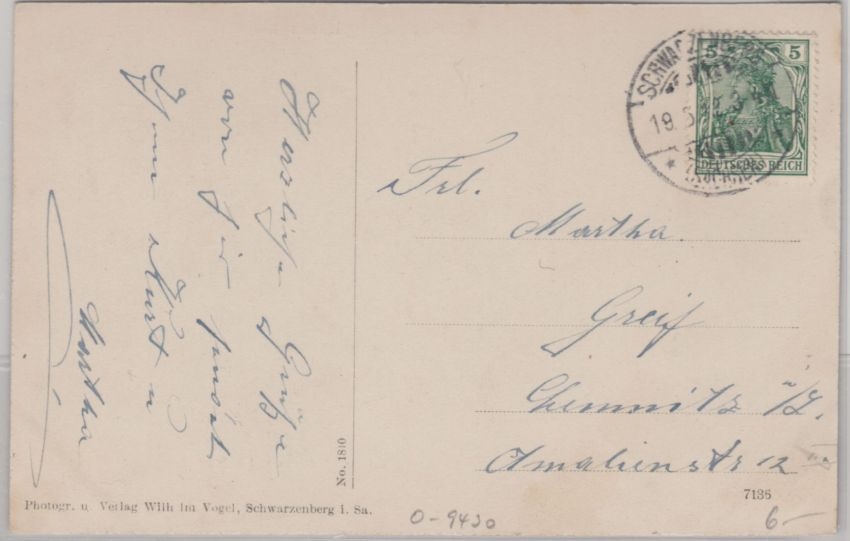 Herzliche Grüße
von hier sendet
Ihnen Kurt u
Martha
Frl.
Martha
Greif
Chemnitz i/S.
Amalienstr 12
SCHWARZENBERG
19.
5 5
DEUTSCHES REICH
No. 1810
Photogr. u. Verlag Wilh im Vogel, Schwarzenberg i. Sa.
7136
0-9430
6-